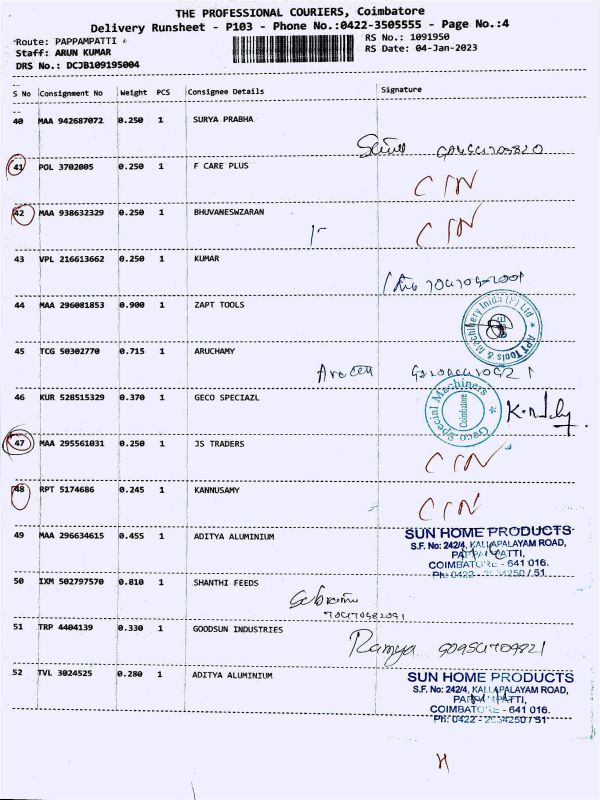 THE PROFESSIONAL COURIERS, Coimbatore
Delivery Runsheet - P103 - Phone No.:0422-3505555 - Page No.:4
Route: PAPPAMPATTI
RS No.: 1091950
Staff: ARUN KUMAR
RS Date: 04-Jan-2023
DRS No.: DCJB109195004
S No Consignment No Weight PCS Consignee Details Signature
40 MAA 942687072 0.250 1 SURYA PRABHA
41 POL 3702005 0.250 1 F CARE PLUS CIN
42 MAA 938632329 0.250 1 BHUVANESWZARAN CIN
43 VPL 216613662 0.250 1 KUMAR
44 MAA 296081853 0.900 1 ZAPT TOOLS
APT Tools & Machinery Inida (P) Ltd
45 TCG 50302770 0.715 1 ARUCHAMY
46 KUR 528515329 0.370 1 GECO SPECIAZL
Geco Special Machiners
Coimbatore
47 MAA 295561031 0.250 1 JS TRADERS CIN
48 RPT 5174686 0.245 1 KANNUSAMY CIN
49 MAA 296634615 0.455 1 ADITYA ALUMINIUM
SUN HOME PRODUCTS
S.F. No: 242/4, KALLAPALAYAM ROAD,
COIMBATORE - 641 016.
50 IXM 502797570 0.810 1 SHANTHI FEEDS
51 TRP 4404139 0.330 1 GOODSUN INDUSTRIES
Ramya
52 TVL 3024525 0.280 1 ADITYA ALUMINIUM
SUN HOME PRODUCTS
S.F. No: 242/4, KALLAPALAYAM ROAD,
COIMBATORE - 641 016.